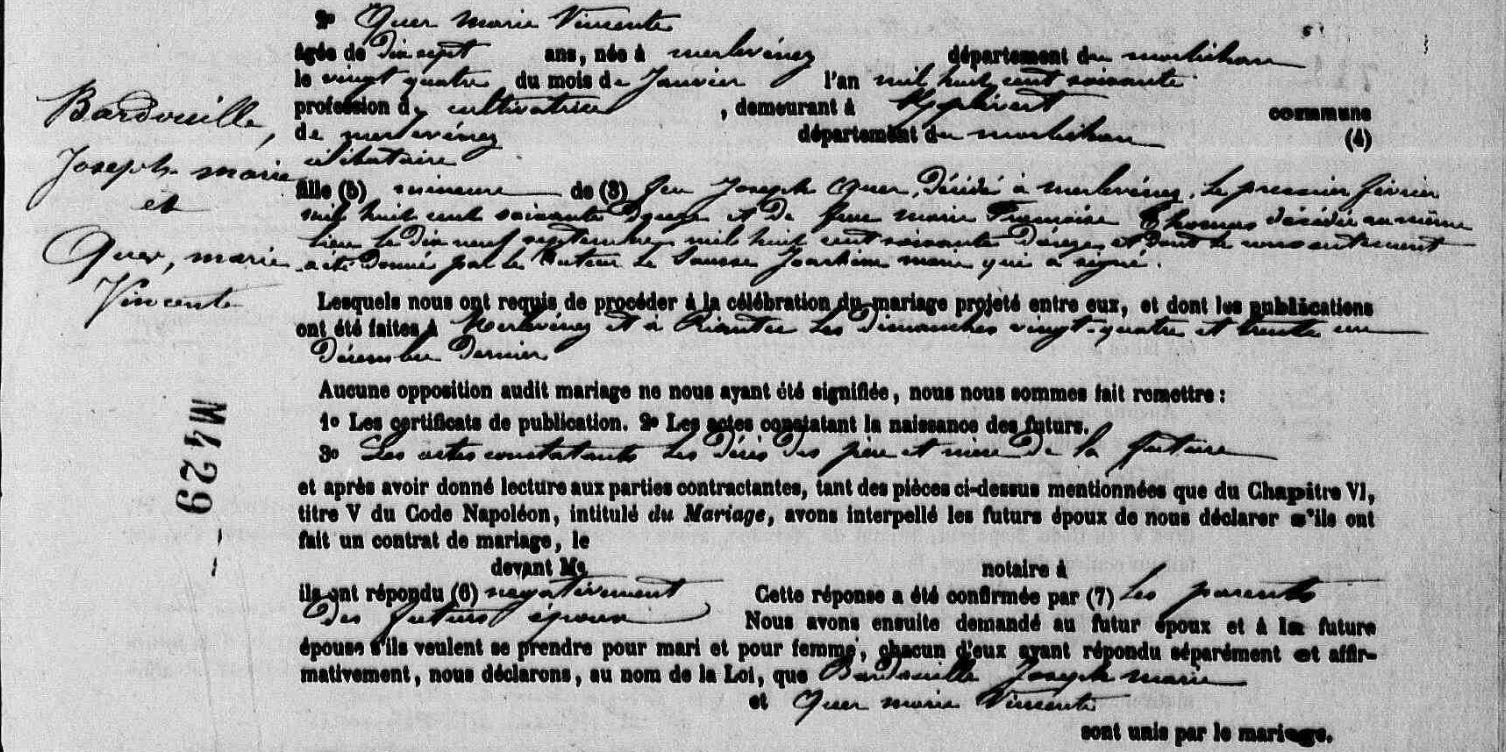 2º Quer marie Vincente
âgée de dix sept ans, née à merlevénez département du morbihan
le vingt quatre du mois de Janvier l'an mil huit cent soixante
profession de cultivatrice, demeurant à commune
de merlevénez département du morbihan (4)
célibataire
Bardouille,
Joseph marie
et
Quer, marie
Vincente
fille (5) mineure de (3) feu Joseph Quer, décédé à merlevénez, le premier février
mil huit cent soixante et de feue marie Françoise Thomas décédée au même
lieu le dix neuf septembre mil huit cent soixante et dont le consentement
a été donné par le tuteur Le Sausse Joachim marie qui a signé.
Lesquels nous ont requis de procéder à la célébration du mariage projeté entre eux, et dont les publications
ont été faites à Merlevénez et à Riantec les dimanches vingt-quatre et trente un
décembre dernier
Aucune opposition audit mariage ne nous ayant été signifiée, nous nous sommes fait remettre :
1º Les certificats de publication. 2º Les actes constatant la naissance des futurs.
3º Les actes constatants les décès des père et mère de la future
M429--
et après avoir donné lecture aux parties contractantes, tant des pièces ci-dessus mentionnées que du Chapitre VI,
titre V du Code Napoléon, intitulé du Mariage, avons interpellé les futurs époux de nous déclarer s'ils ont
fait un contrat de mariage, le
devant Me notaire à
ils ont répondu (6) négativement Cette réponse a été confirmée par (7) les parents
des futurs époux Nous avons ensuite demandé au futur époux et à la future
épouse s'ils veulent se prendre pour mari et pour femme, chacun d'eux ayant répondu séparément et affir-
mativement, nous déclarons, au nom de la Loi, que Bardouille Joseph marie
et Quer marie Vincente
sont unis par le mariage.